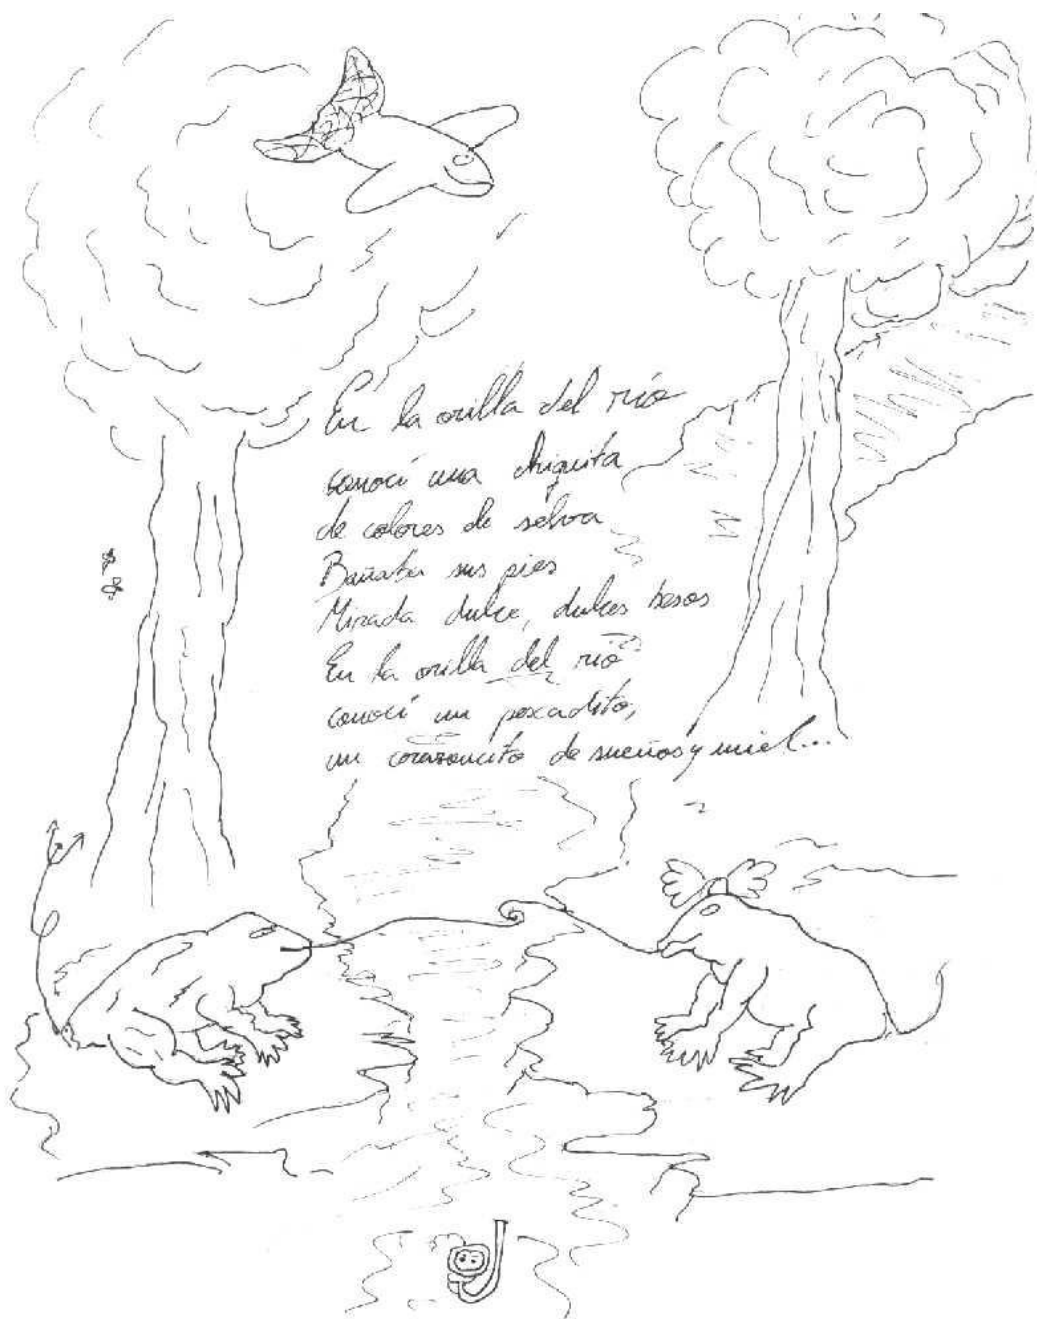 En la orilla del río
conocí una chiquita
de colores de selva
Bañaba sus pies
Mirada dulce, dulces besos
En la orilla del río
conocí un pescadito,
un corazoncito de sueños y miel...